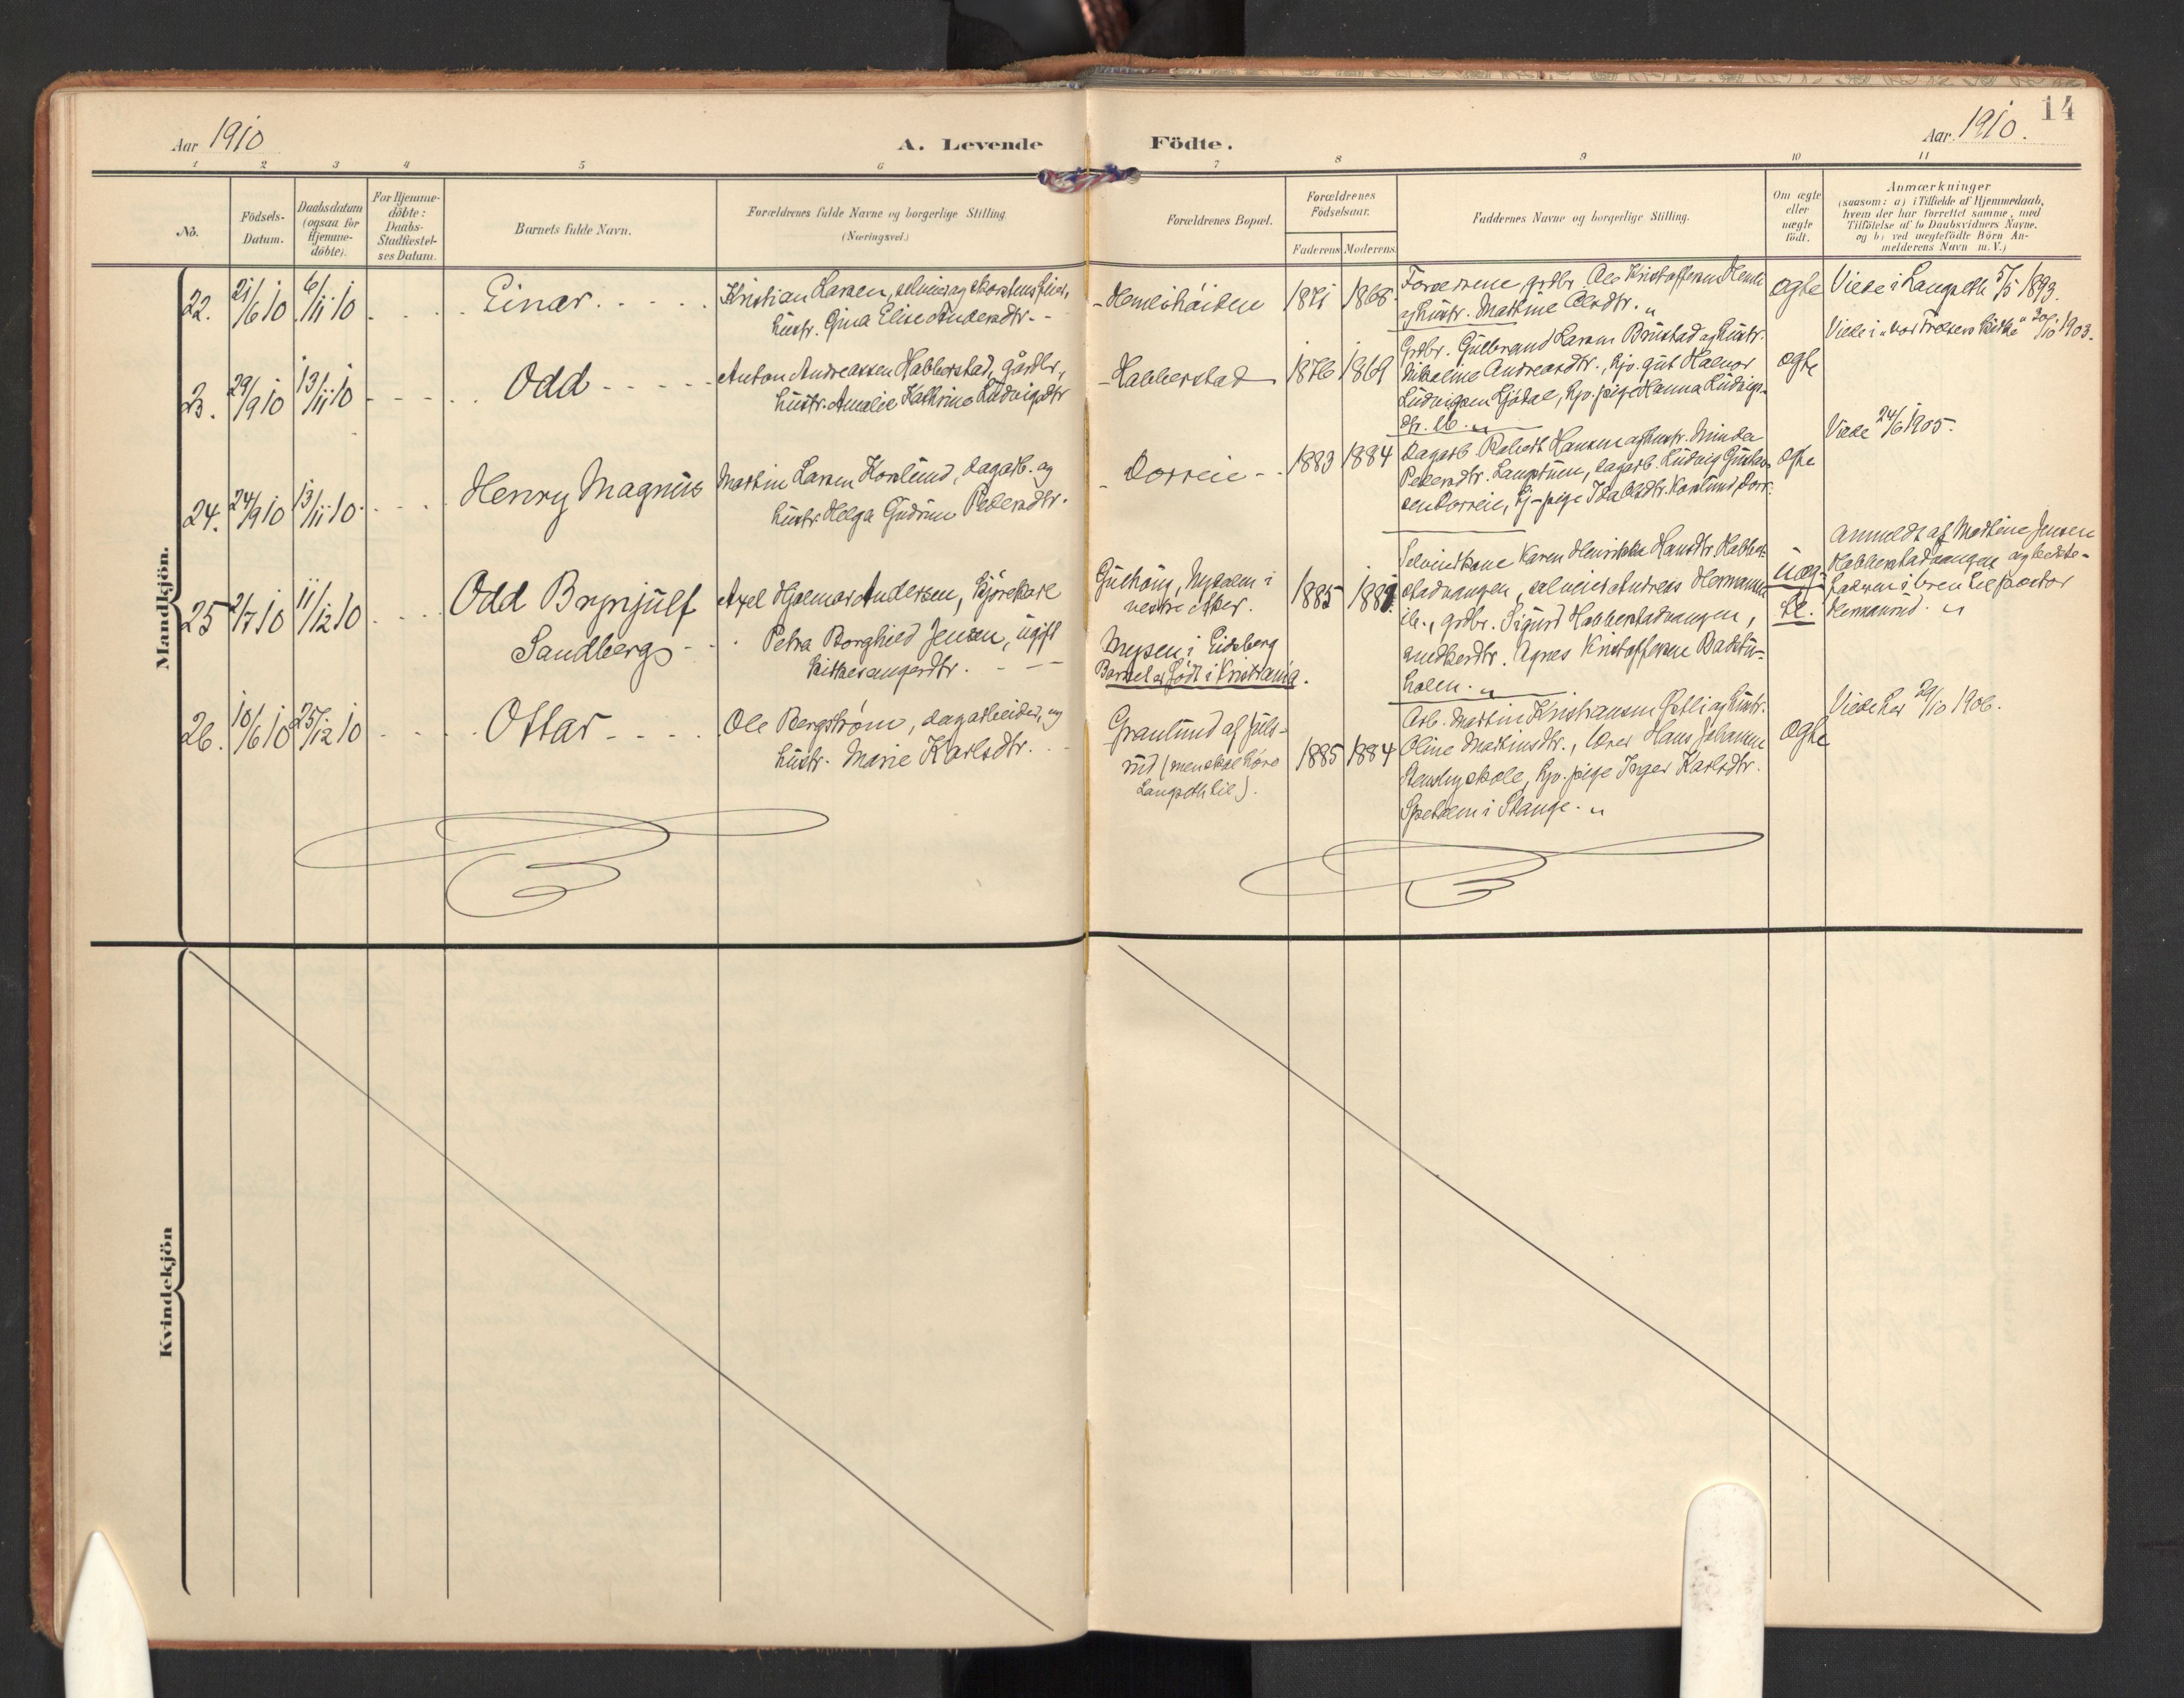 14
Aar 1910
A. Levende Födte.
Aar. 1910.
1 2 3 4 5 6 7 8 9 10 11
No.
Födsels-
Datum.
Daabsdatum
(ogsaa for
Hjemme-
döbte).
For Hjemme-
döbte:
Daabs-
Stadfæstel-
ses Datum.
Barnets fulde Navn.
Forældrenes fulde Navne og borgerlige Stilling
(Næringsvei.)
Forældrenes Bopæl.
Forældrenes
Födselsaar.
Faderens Moderens
Faddernes Navne og borgerlige Stilling.
Om ægte
eller
uægte
født.
Anmærkninger
(saasom: a) i Tilfælde af Hjemmedaab,
hvem der har forrettet samme, med
Tilföielse af to Daabsvidners Navne.
og b) ved uægtefödte Börn An-
melderens Navn m. V.)
Mandkjön.
22.
21/6 10
6/11 10
Einar.
Kristian Larsen, selveier og skorstensfeier,
hustr. Gina Elise Andersdtr.
Hemlihaiten
1871
1868
Forældrene, grdbr. Ole Kristoffersen Hemli
og hustr. Mathine Olsdtr. "
ogte
Viede i Langseth 5/5 1893.
23.
29/9 10
13/11 10
Odd
Anton Andreassen Habberstad, gårdbr,
hustr. Amalie Kathrine Ludvigsdtr
Habberstad
1876
1869
Grdbr. Gulbrand Larsen Brustad og hustr.
Nikoline Andreasdtr., hjv. gut Halvor
Ludvigsen, hjv. pige Hanna Ludvigs-
dtr. ib. "
ogte
Viede i "Vor Frelsers kirke" 20/10 1903.
24.
24/9 10
13/11 10
Henry Magnus
Martin Larsen Korslund, dagarb. og
hustr. Helga Gudrun Pedersdtr.
Dorreie
1883
1884
Dagarb. Robert Hansen og hustr. Minda
Pedersdtr. Langstuen, dagarb. Ludvig Gustav-
sen Dorreie, tj-pige Ida Olsdtr. Korslund, Dorr.
ogte
Viede 24/6 1905.
25
2/7 10
11/12 10
Odd Brynjulf
Sandberg
Axel Hjalmar Andersen, kjørekarl
Petra Borghild Jensen, ugift
Gulhaug, Nydalen i
vestre Aker.
Mysen i Eidsberg
Barnet er født i Kristiania.
1885
Selveierkone Karen Henrikke Hansdtr. Habber-
stadvangen, selveier Andreas Hermansen
ib., grdbr. Sigurd Habberstadvangen,
Agnes Kristoffersen Badstu-
holen. "
uæg-
te.
Anmeldt af Mathine Jensen
Habberstadvangen og bedste-
faderen
26.
10/6 10
25/12 10
Ottar
Ole Bergstrøm, dagarbeider, og
hustr. Marie Karlsdtr.
Granlund af Juls-
rud (men skal høre
Langseth til).
1885
1884
Arb. Martin Kristiansen og hustr.
Oline Martinsdtr., lærer Hans Johansen
Stensby skole, hjv. pige Inger Karlsdtr.
i Stange. "
ogte
Viede her 29/10 1906.
Kvindekjön